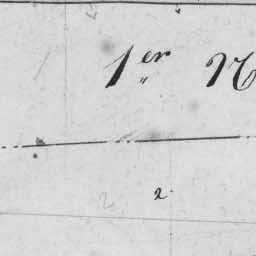 1er N
2